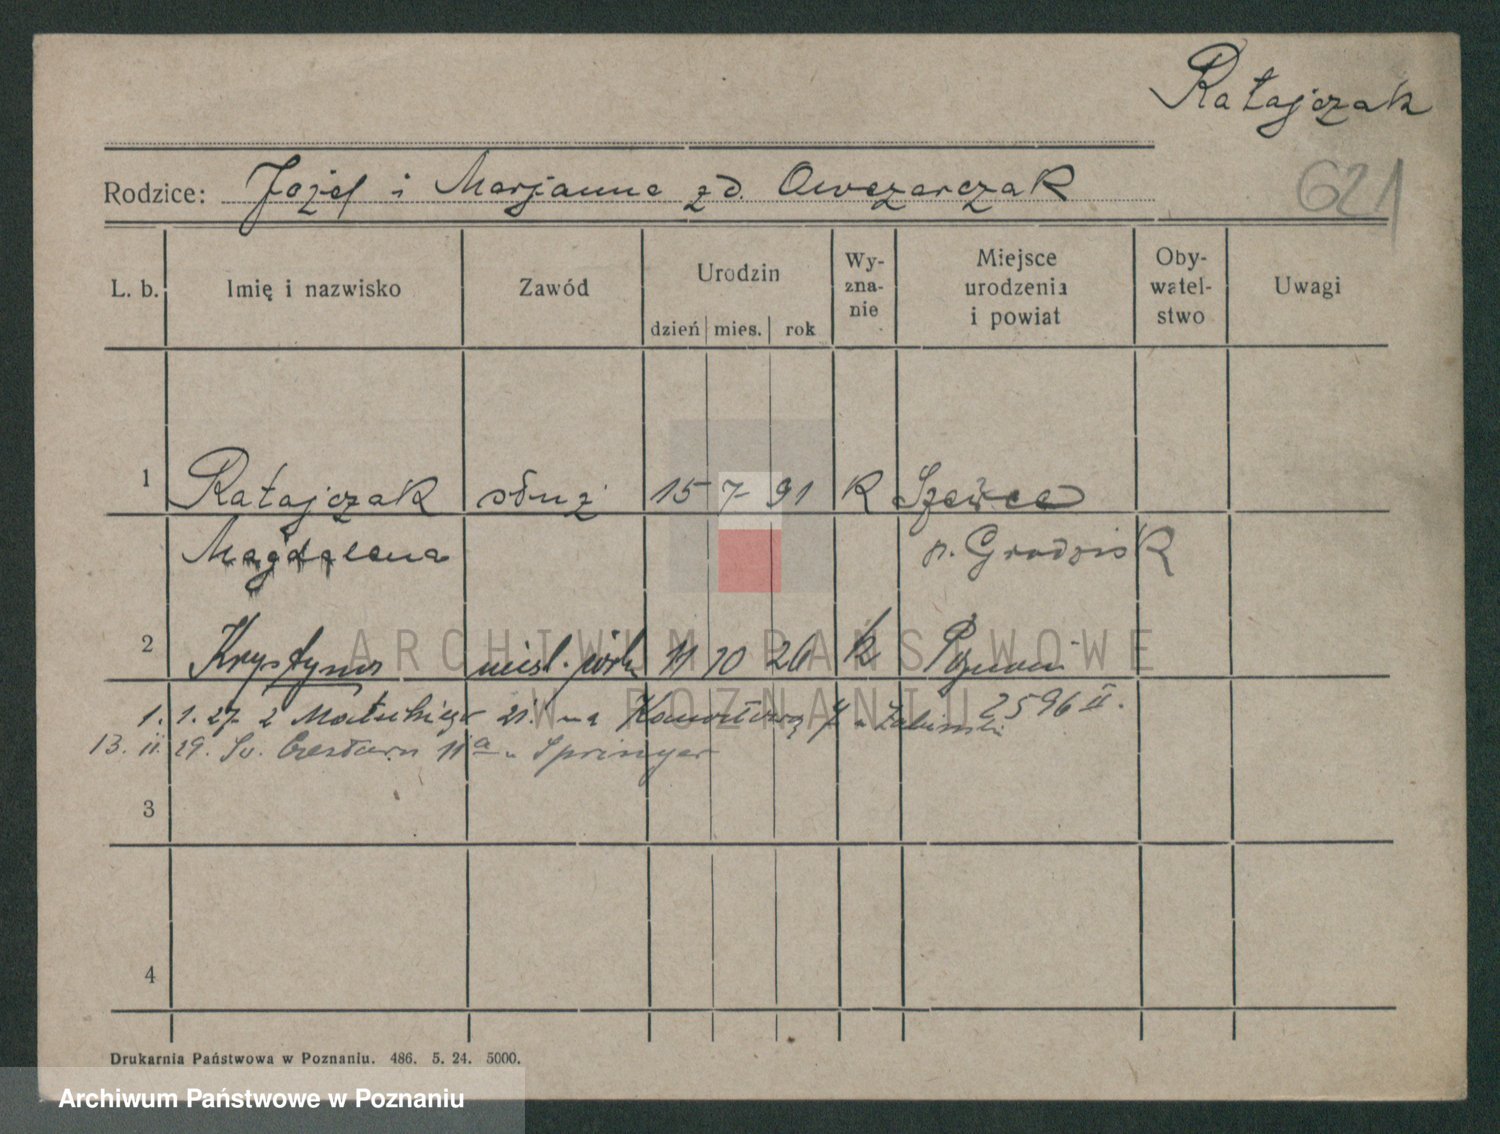 Ratajczak
621
Rodzice: Józef i Marjanna zd. Owczarczak
L. b. Imię i nazwisko Zawód Urodzin Wy- zna- nie Miejsce urodzenia i powiat Oby- watel- stwo Uwagi
dzień mies. rok
1 Ratajczak służ 15 7 91 K
Magdalena p. Grodzisk
2 Krystyna 11 10 26 k Poznań
2596 II.
1. 1. 27 z 21. na
13. 11. 29. Św. Czesława 11a u Springer
3
4
ARCHIWUM PAŃSTWOWE
W POZNANIU
Drukarnia Państwowa w Poznaniu. 486. 5. 24. 5000.
Archiwum Państwowe w Poznaniu